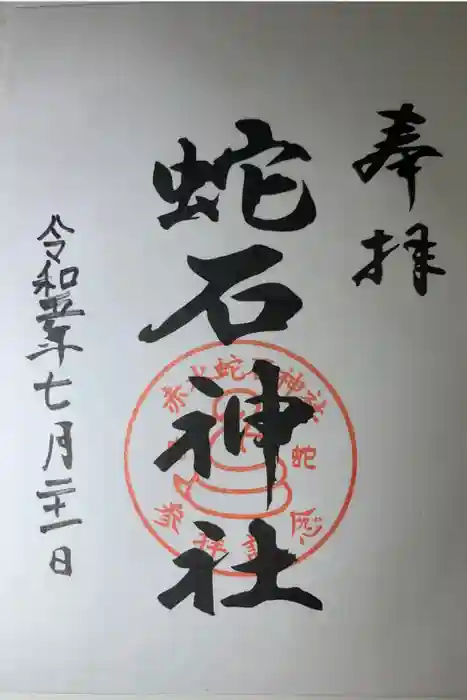 奉拝
蛇石神社
令和五年七月二十一日
赤水蛇石神社
蛇
参拝記念